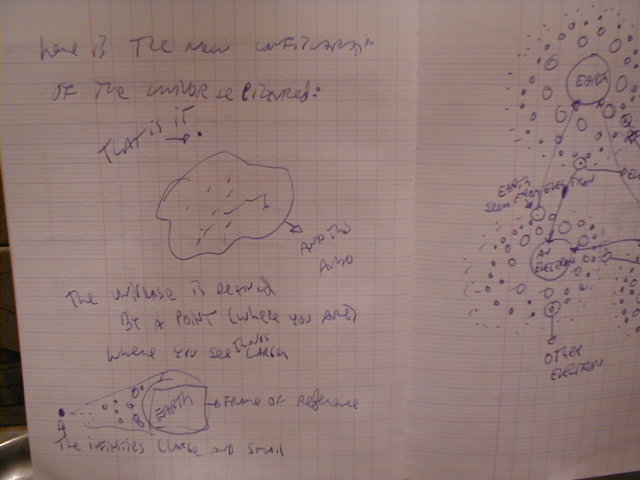 here is the new configuration
OF The universe pictured:
THAT is iT
AND This
ALSO
The universe is defined
BY A POINT (where you ARE)
where you see THINGS LARGER
EARTH
FRAME OF Reference
The infinities (LARGE AND SMALL
EARTH
EARTH
seen From ELECTRON
AN
ELECTRON
OTHER
ELECTRON